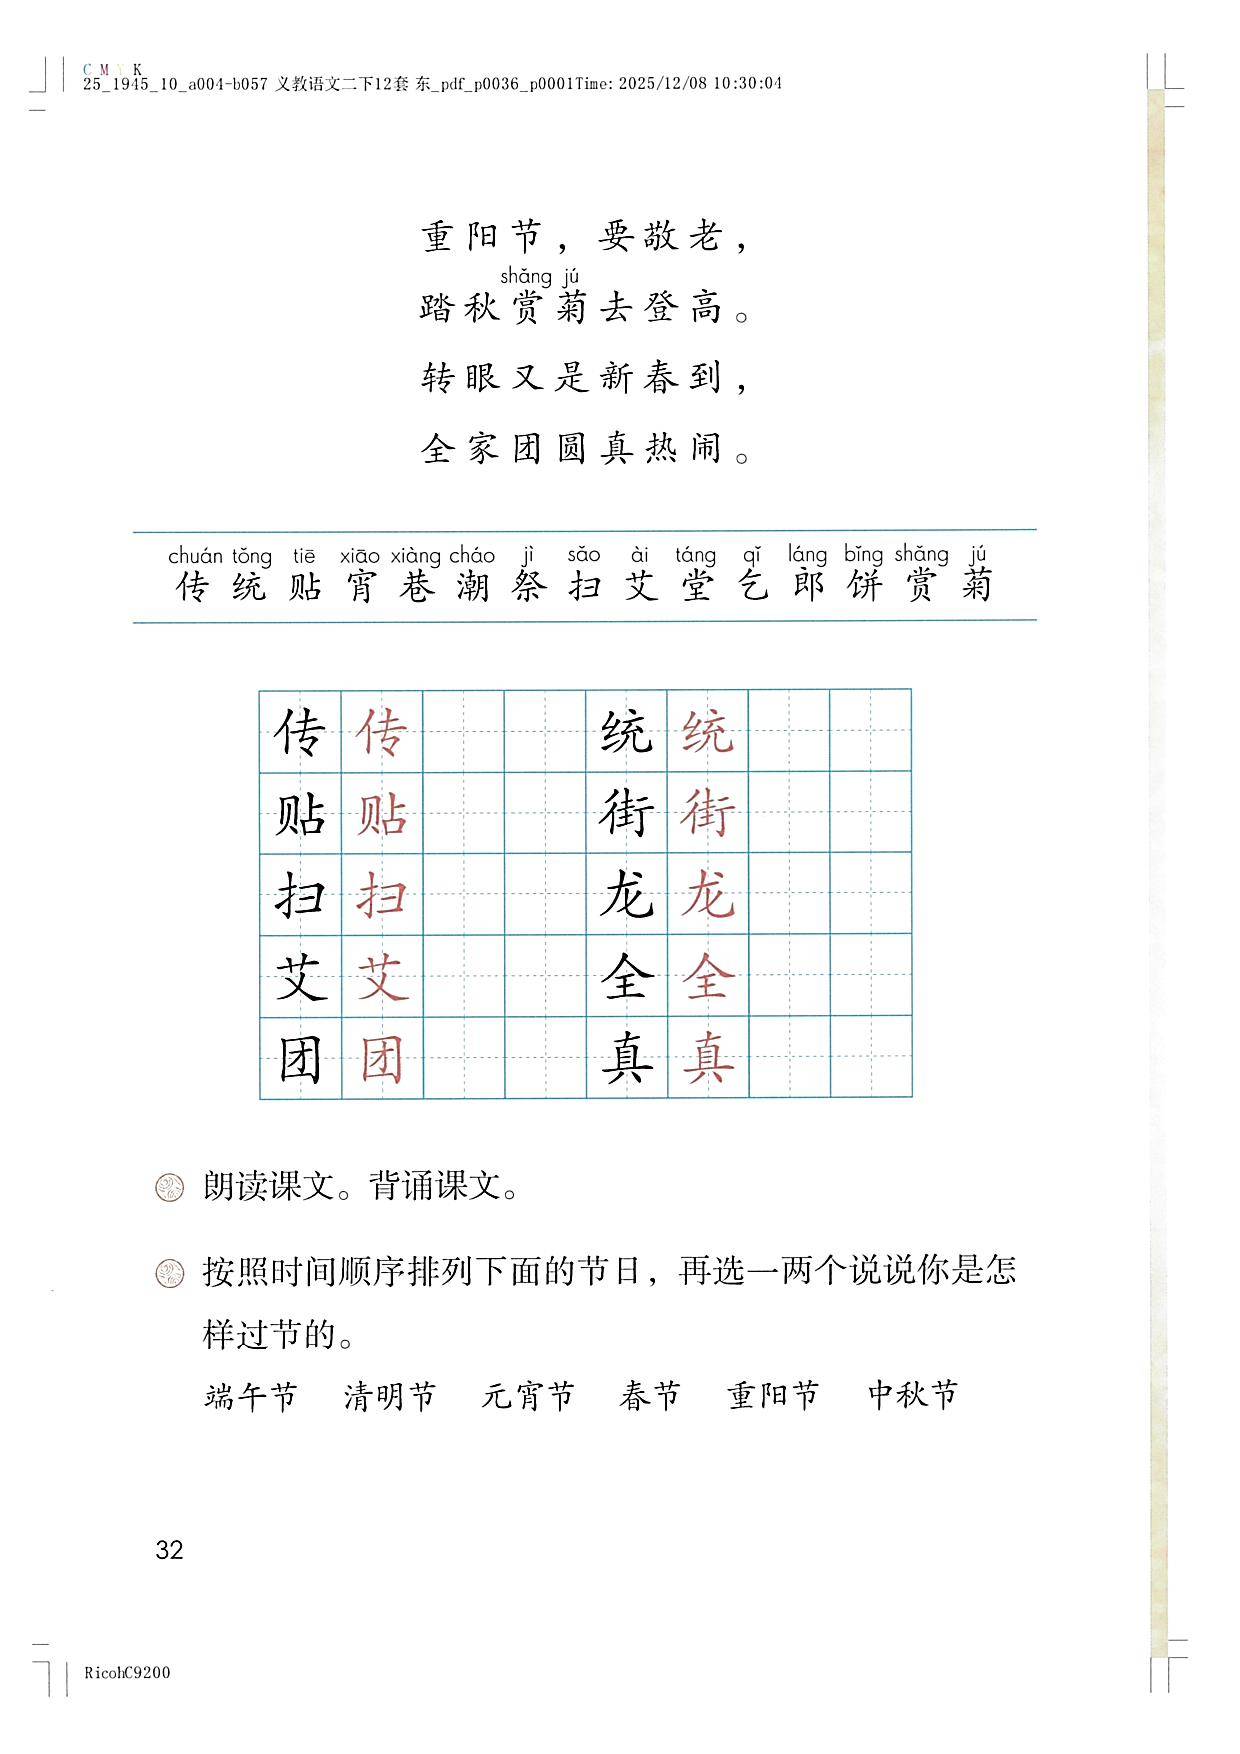 C M Y K
25_1945_10_a004-b057 义教语文二下12套 东_pdf_p0036_p0001Time: 2025/12/08 10:30:04
重阳节，要敬老，
shǎng jú
踏秋赏菊去登高。
转眼又是新春到，
全家团圆真热闹。
chuán tǒng tiē xiāo xiàng cháo jì sǎo ài táng qǐ láng bǐng shǎng jú
传 统 贴 宵 巷 潮 祭 扫 艾 堂 乞 郎 饼 赏 菊
传 传 统 统
贴 贴 街 街
扫 扫 龙 龙
艾 艾 全 全
团 团 真 真
朗读课文。背诵课文。
按照时间顺序排列下面的节日，再选一两个说说你是怎
样过节的。
端午节 清明节 元宵节 春节 重阳节 中秋节
32
RicohC9200